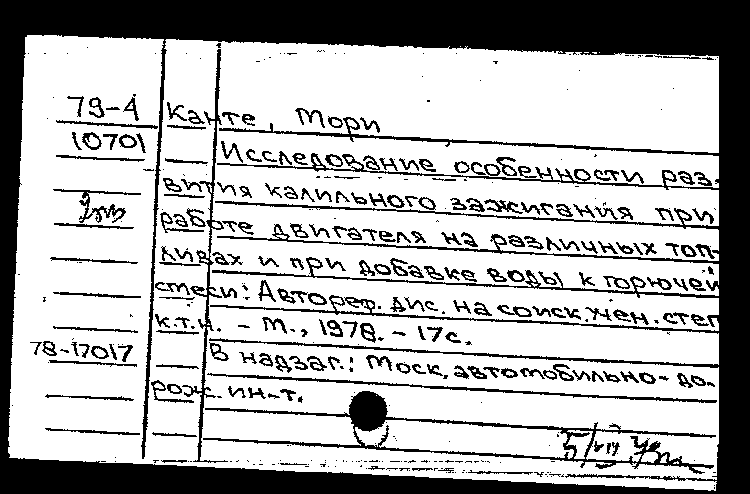 79-4 Канте, Мори
10701 Исследование особенности раз-
вития калильного зажигания при
работе двигателя на различных топ-
ливах и при добавке воды к горючей
смеси: Автореф. дис. на соиск. учен. степ
к.т.н. - М., 1978. - 17с.
78-17017 В надзаг.: Моск. автомобильно-до-
рож. ин-т.